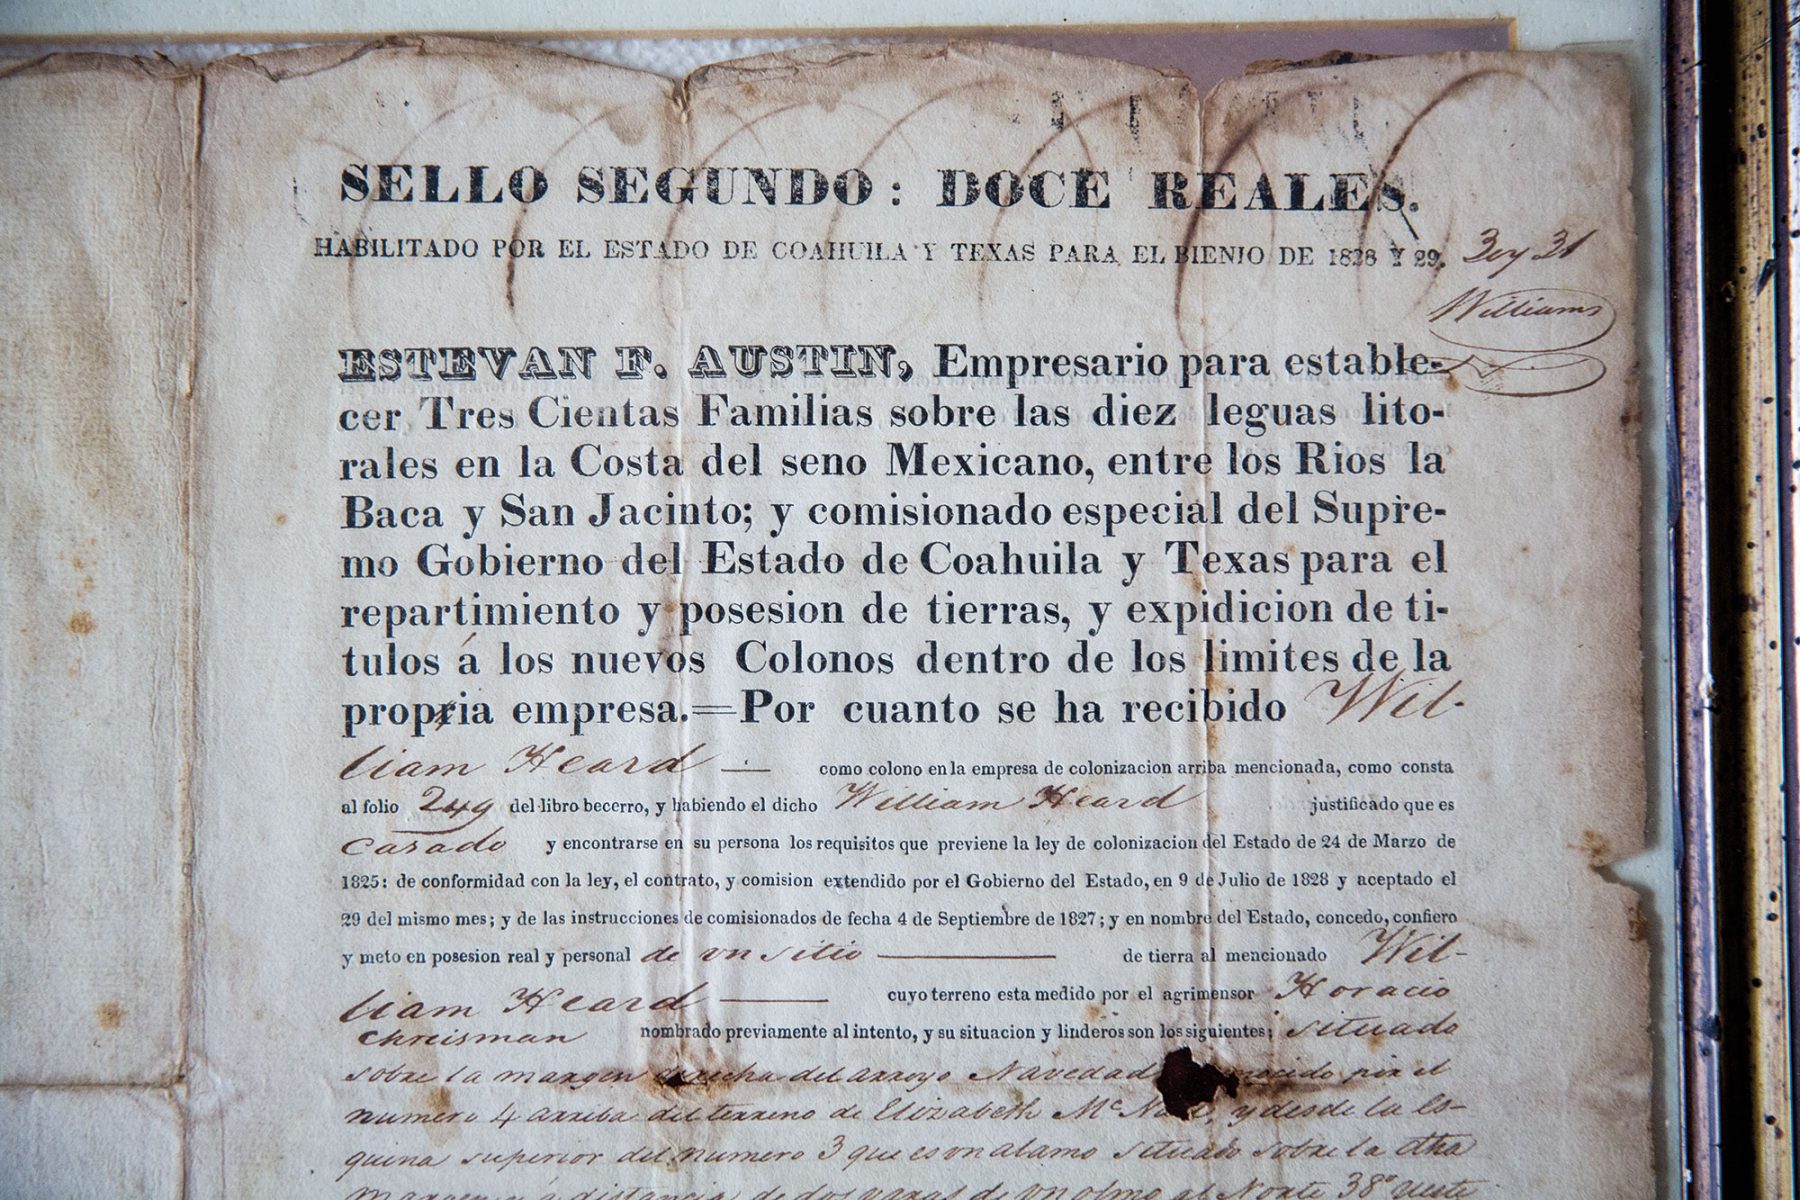 SELLO SEGUNDO: DOCE REALES.
HABILITADO POR EL ESTADO DE COAHUILA Y TEXAS PARA EL BIENIO DE 1828 Y 29. 30 y 31
Williams
ESTEVAN F. AUSTIN, Empresario para estable-
cer Tres Cientas Familias sobre las diez leguas lito-
rales en la Costa del seno Mexicano, entre los Rios la
Baca y San Jacinto; y comisionado especial del Supre-
mo Gobierno del Estado de Coahuila y Texas para el
repartimiento y posesion de tierras, y expidicion de ti-
tulos á los nuevos Colonos dentro de los limites de la
propria empresa.=Por cuanto se ha recibido Wil-
liam Heard — como colono en la empresa de colonizacion arriba mencionada, como consta
al folio 249 del libro becerro, y habiendo el dicho William Heard justificado que es
Casado y encontrarse en su persona los requisitos que previene la ley de colonizacion del Estado de 24 de Marzo de
1825: de conformidad con la ley, el contrato, y comision extendido por el Gobierno del Estado, en 9 de Julio de 1828 y aceptado el
29 del mismo mes; y de las instrucciones de comisionados de fecha 4 de Septiembre de 1827; y en nombre del Estado, concedo, confiero
y meto en posesion real y personal de un sitio — de tierra al mencionado Wil-
liam Heard — cuyo terreno esta medido por el agrimensor Horacio
Chreisman nombrado previamente al intento, y su situacion y linderos son los siguientes; situado
sobre la margen derecha del arroyo Navedad por el
numero 4 arriba del terreno de Elizabeth Mc y desde la es-
quina superior del numero 3 que es un alamo situado sobre la otra
margen y á distancia de dos varas de un olmo al Norte 38° Ueste